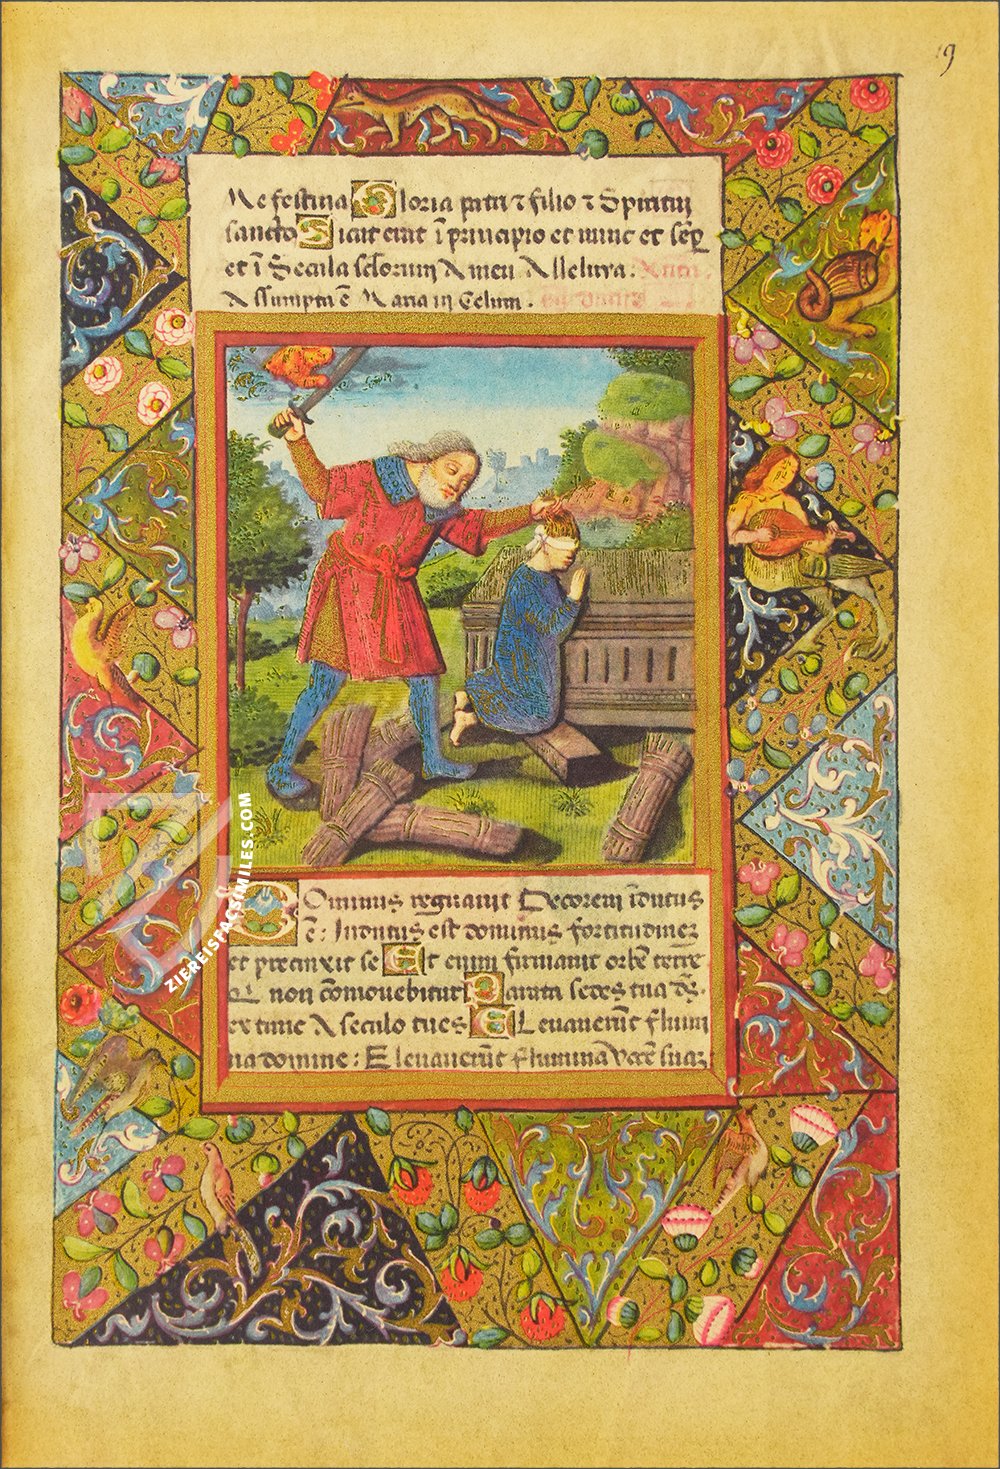 9
Me festina Gloria patri ⁊ filio ⁊ Spiritui
sancto Sicut erat ī principio et nunc et sēp
et ī Secula sclorum Amen Alleluya.
Assumpta ē Maria in Celum.
Dominus regnavit Decorem īdutus
ē: Indutus est dominus fortitudinez
et precinxit se Et enim firmavit orbē terre
non cōmovebitur Parata sedes tua
ex tunc A seculo tu es ELevaverūt flumi
na domine: Elevaverūt flumina vocē suaz
ZIEREISFACSIMILES.COM